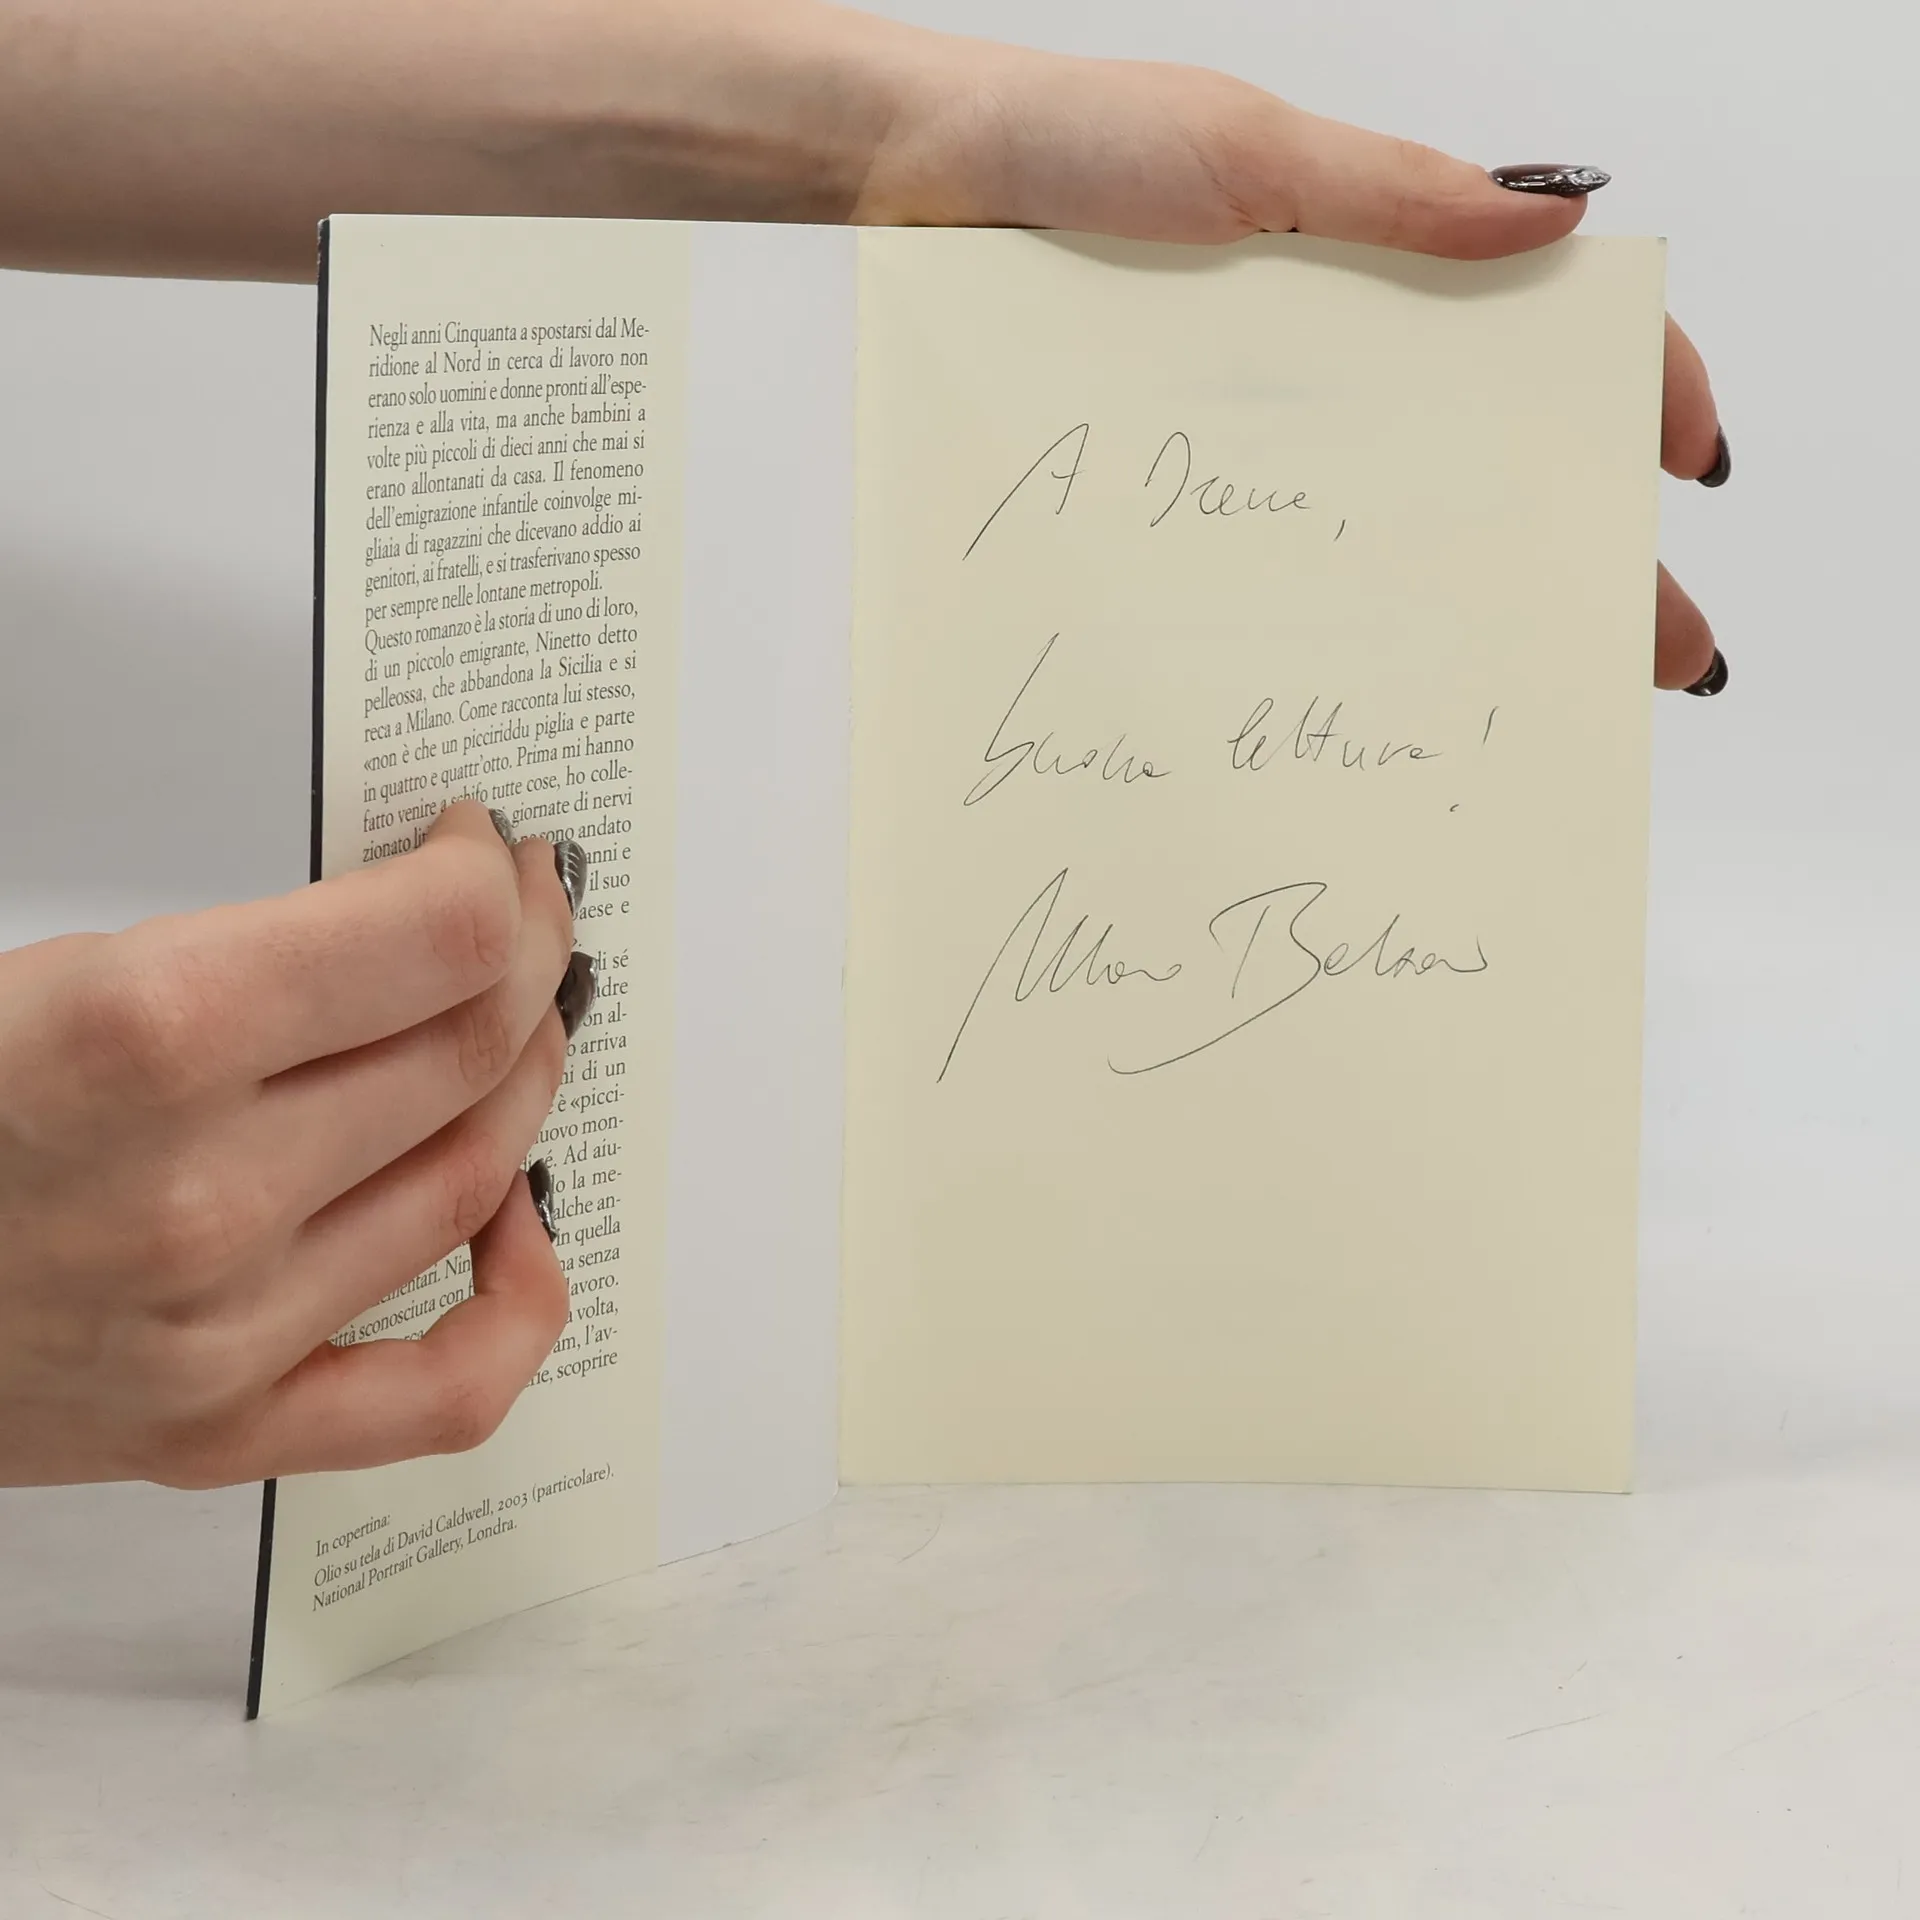 Negli anni Cinquanta a spostarsi dal Me-
ridione al Nord in cerca di lavoro non
erano solo uomini e donne pronti all'espe-
rienza e alla vita, ma anche bambini a
volte più piccoli di dieci anni che mai si
erano allontanati da casa. Il fenomeno
dell'emigrazione infantile coinvolge mi-
gliaia di ragazzini che dicevano addio ai
genitori, ai fratelli, e si trasferivano spesso
per sempre nelle lontane metropoli.
Questo romanzo è la storia di uno di loro,
di un piccolo emigrante, Ninetto detto
pelleossa, che abbandona la Sicilia e si
reca a Milano. Come racconta lui stesso,
«non è che un picciriddu piglia e parte
in quattro e quattr'otto. Prima mi hanno
fatto venire a schifo tutte cose, ho colle-
zionato giornate di nervi
sono andato
anni e
il suo
di sé
on al-
arriva
di un
è «picci-
mon-
sé. Ad aiu-
la me-
an-
in quella
senza
lavoro.
città sconosciuta con
volta,
l'av-
scoprire
In copertina:
Olio su tela di David Caldwell, 2003 (particolare).
National Portrait Gallery, Londra.
A Irene,
buona lettura!
Marco Balzano